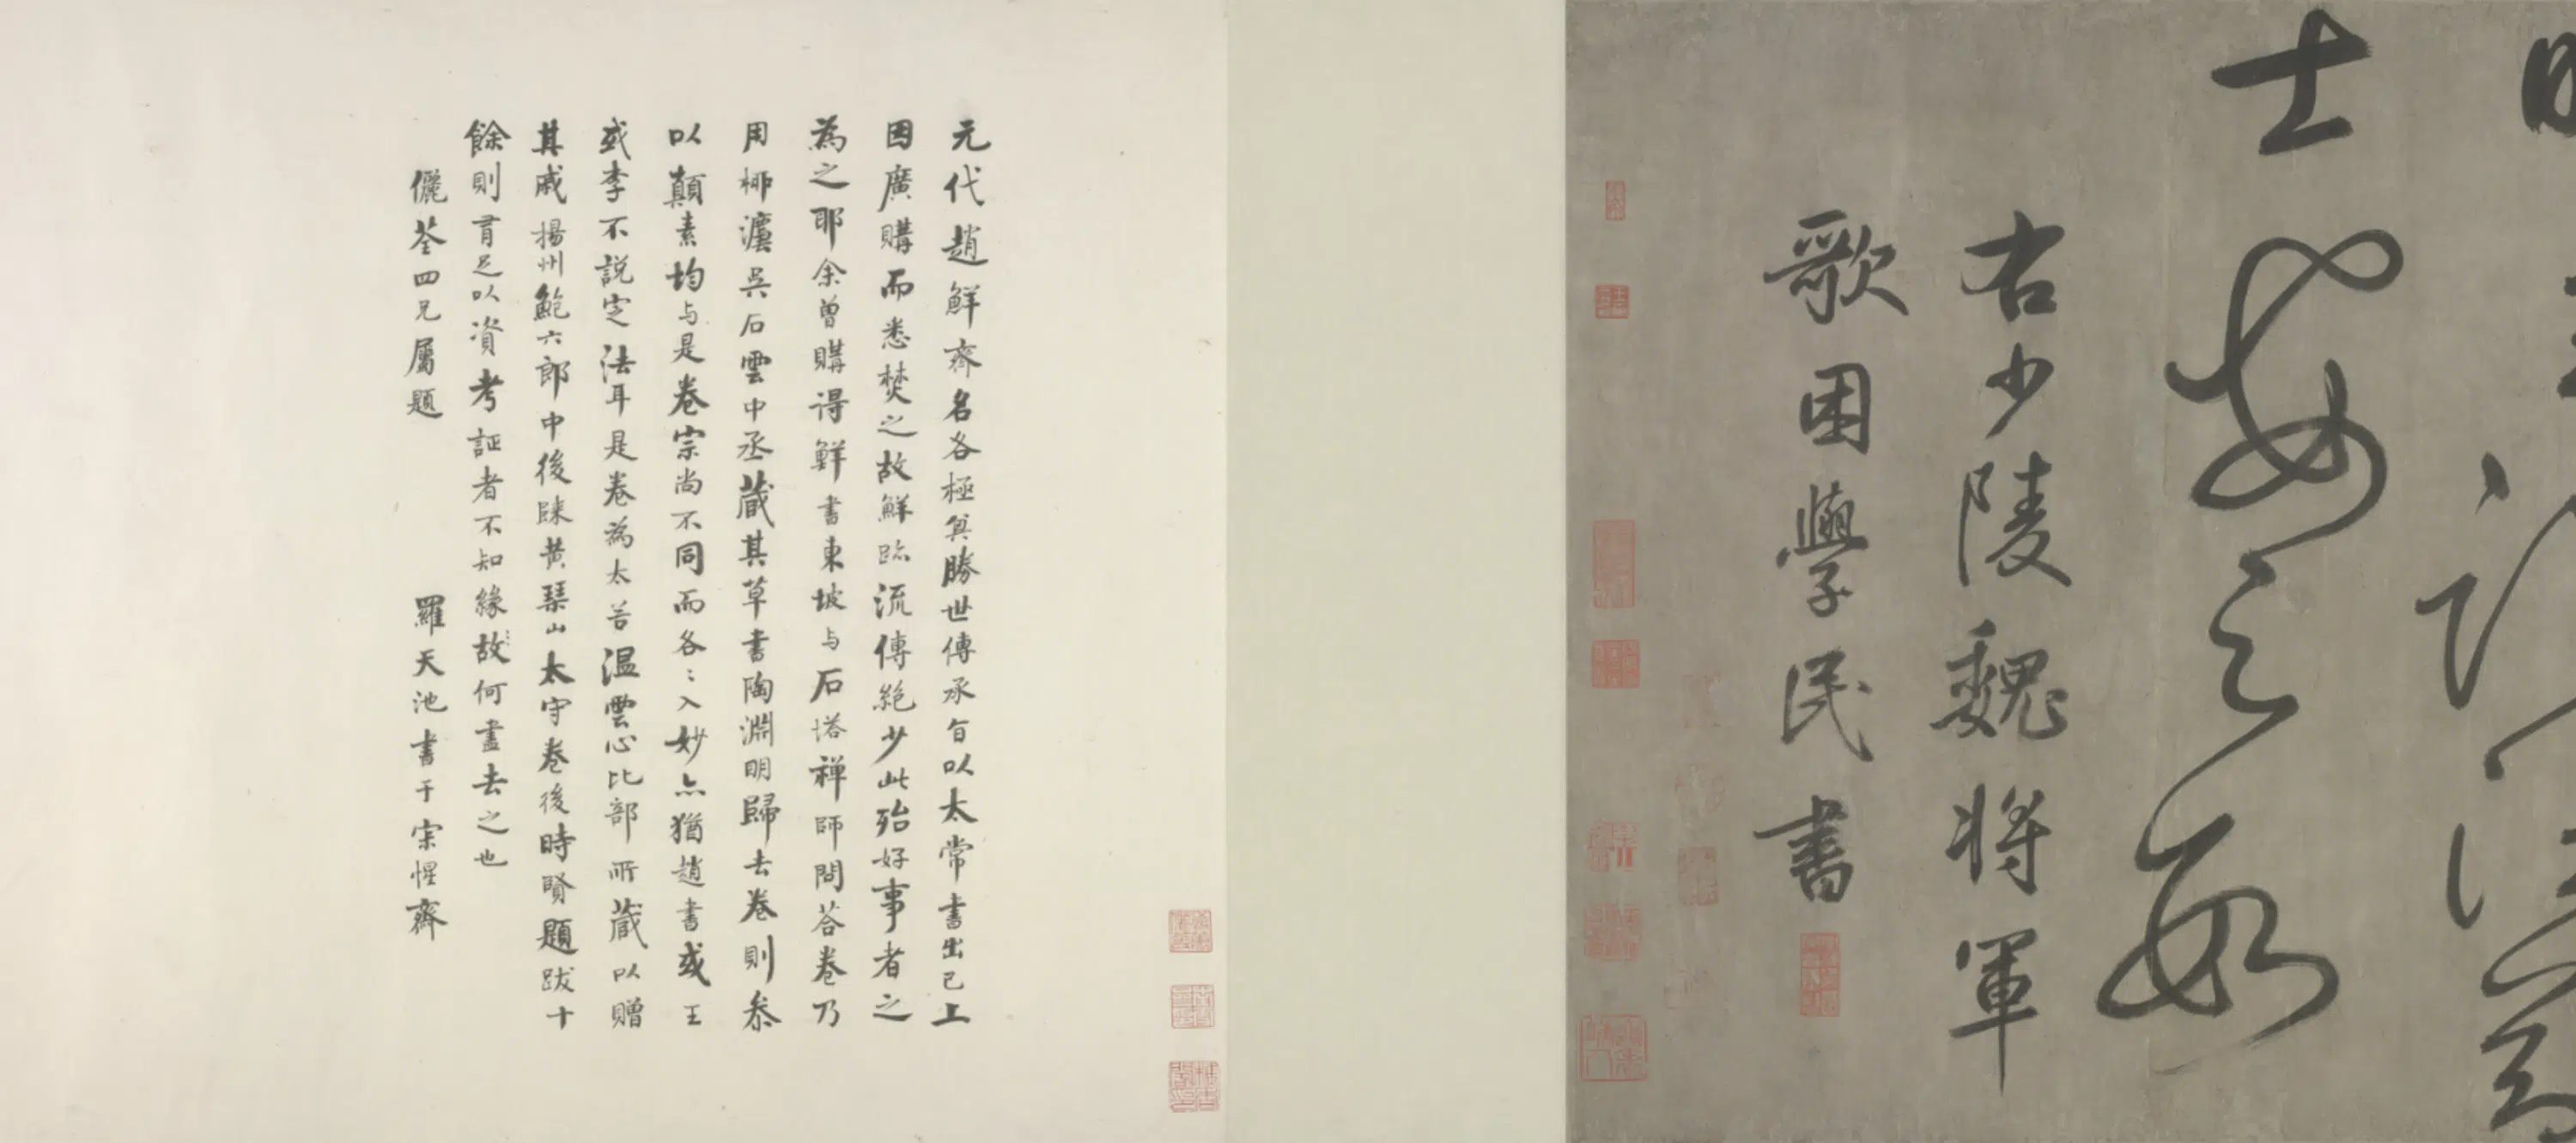 士安足數
右少陵魏將軍
歌困學民書
元代趙鮮齊名各極其勝世傳承旨以太常書出己上
因廣購而悉焚之故鮮跡流傳絕少此殆好事者之
為之耶余曾購得鮮書東坡与石塔禅師問荅卷乃
用柳灋吳石雲中丞藏其草書陶淵明歸去卷則叅
以顛素均与是卷宗尚不同而各〻入妙亦猶趙書或王
或李不說定法耳是卷為太谷溫雲心比部所藏以贈
其戚揚州鮑六郎中後歸黃琴山太守卷後時賢題跋十
餘則有足以資考証者不知緣故何盡去之也
儷荃四兄屬題 羅天池書于宋惺齋